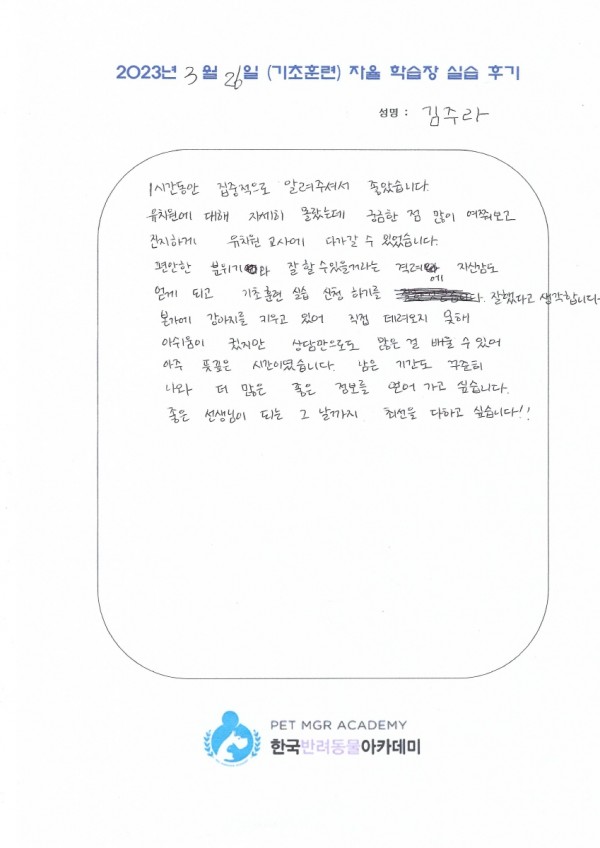 2023년 3월 26일 (기초훈련) 자율 학습장 실습 후기
성명 : 김주라
1시간동안 집중적으로 알려주셔서 좋았습니다.
유치원에 대해 자세히 몰랐는데 궁금한 점 많이 여쭤보고
진지하게 유치원 교사에 다가갈 수 있었습니다.
편안한 분위기와 잘 할 수있을거라는 격려에 자신감도
얻게 되고 기초훈련 실습 신청 하기를 잘했다고 생각합니다.
본가에 강아지를 키우고 있어 직접 데려오지 못해
아쉬움이 컸지만 상담만으로도 많은 걸 배울 수 있어
아주 뜻깊은 시간이였습니다. 남은 기간도 꾸준히
나와 더 많은 좋은 정보를 얻어 가고 싶습니다.
좋은 선생님이 되는 그 날까지 최선을 다하고 싶습니다!!
PET MGR ACADEMY
한국반려동물아카데미